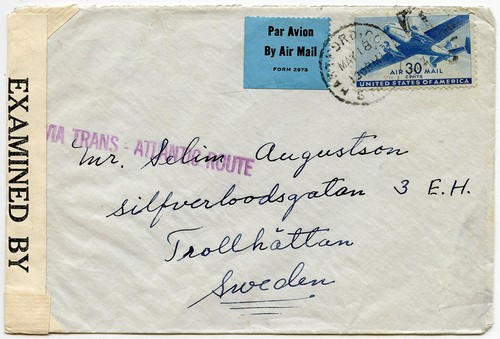 Par Avion
By Air Mail
FORM 2978
HARTFORD, CO
MAY 18
AIR 30 MAIL
CENTS
UNITED STATES OF AMERICA
EXAMINED BY
VIA TRANS - ATLANTIC ROUTE
Mr. Selim Augustson
Silfverloodsgatan 3 E.H.
Trollhättan
Sweden